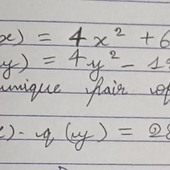 x) = 4x² + 6
y) = 4y² - 1
unique pair of
x) · q(y) = 28